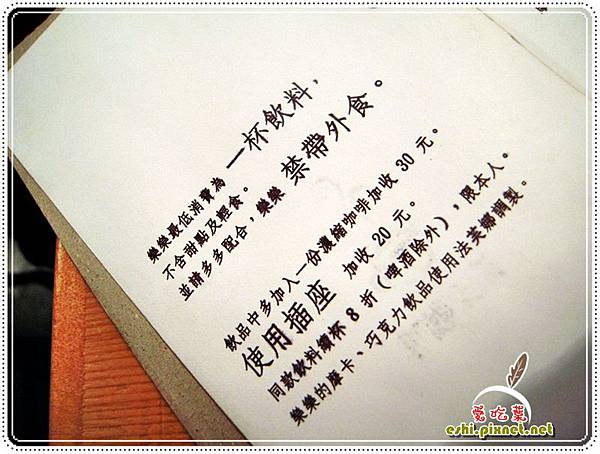 樂樂最低消費為 一杯飲料，
不含甜點及輕食。
並請多多配合，樂樂 禁帶外食。
飲品中多加入一份濃縮咖啡加收 30 元。
使用插座 加收 20 元。
同款飲料續杯 8 折（啤酒除外），限本人。
樂樂的摩卡、巧克力飲品使用法芙娜調製。
愛吃葉
eshi.pixnet.net